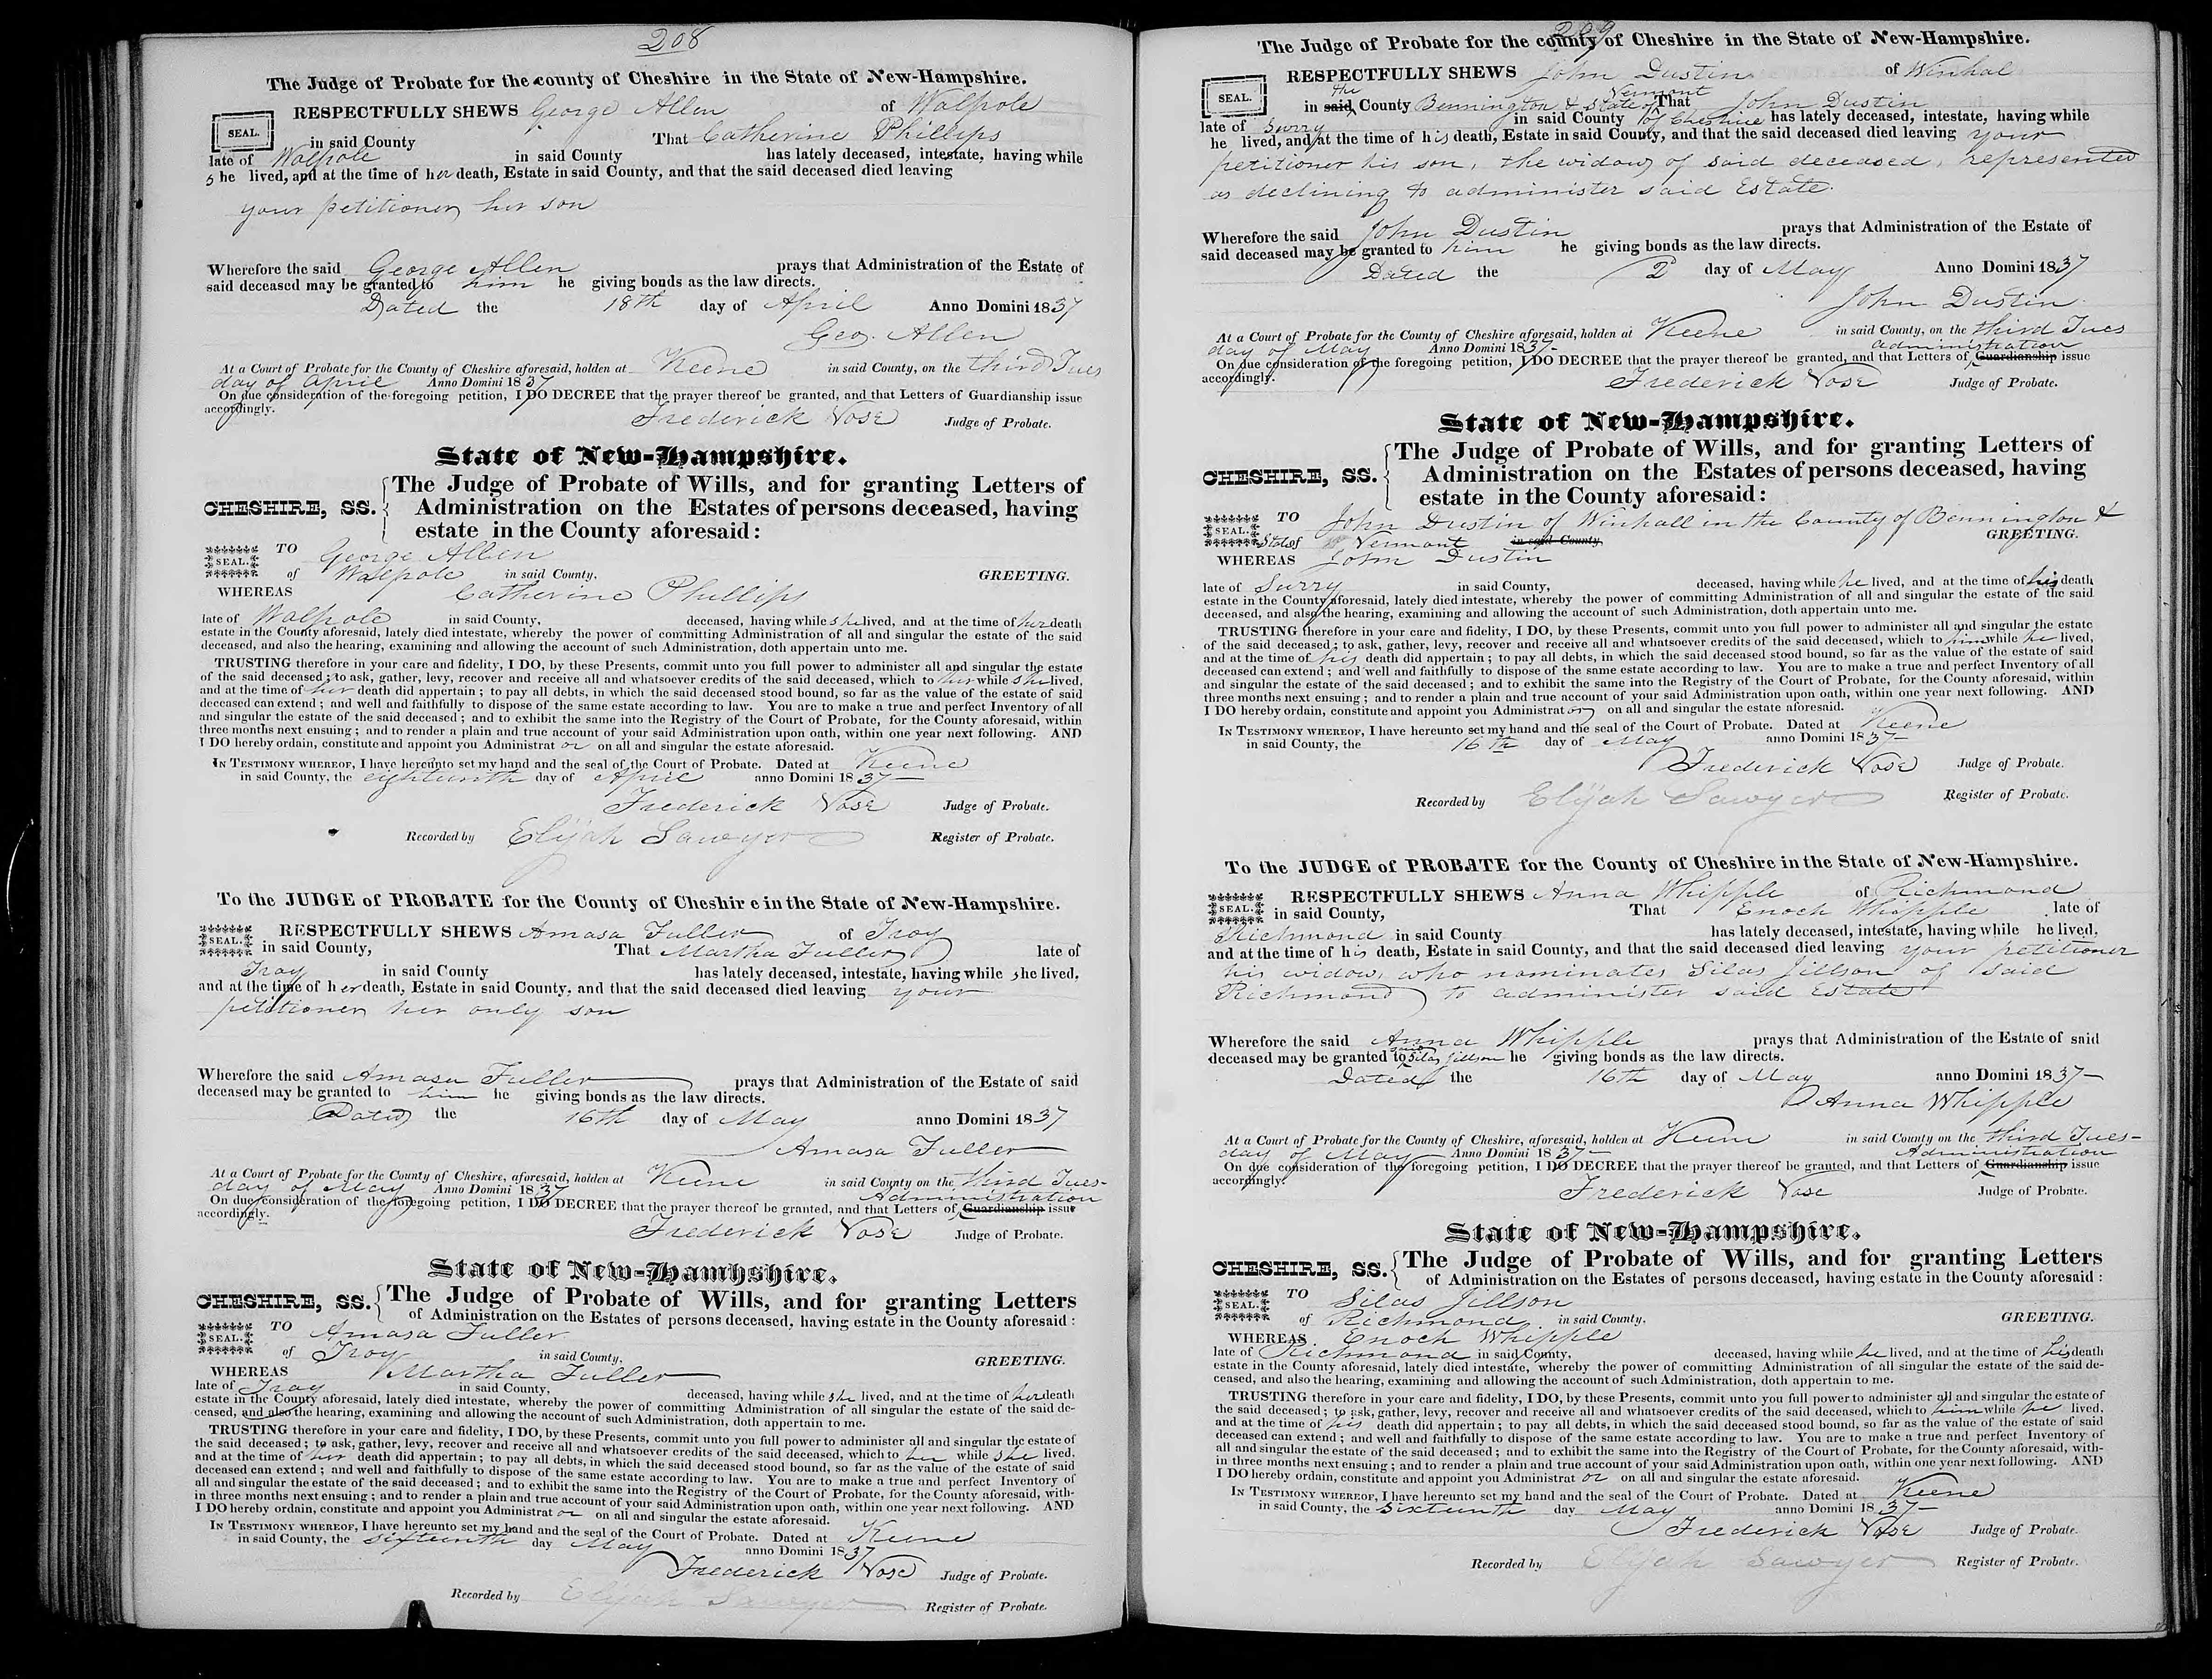 208
The Judge of Probate for the county of Cheshire in the State of New-Hampshire.
SEAL.
RESPECTFULLY SHEWS George Allen of Walpole
in said County That Catherine Phillips
late of Walpole in said County has lately deceased, intestate, having while
she lived, and at the time of her death, Estate in said County, and that the said deceased died leaving
your petitioner her son
Wherefore the said George Allen prays that Administration of the Estate of
said deceased may be granted to him he giving bonds as the law directs.
Dated the 18th day of April Anno Domini 1837
Geo. Allen
At a Court of Probate for the County of Cheshire aforesaid, holden at Keene in said County, on the third Tues
day of April Anno Domini 1837
On due consideration of the foregoing petition, I DO DECREE that the prayer thereof be granted, and that Letters of Guardianship issue
accordingly.
Frederick Vose Judge of Probate.
State of New-Hampshire.
CHESHIRE, SS. The Judge of Probate of Wills, and for granting Letters of
Administration on the Estates of persons deceased, having
estate in the County aforesaid:
SEAL.
TO George Allen
of Walpole in said County. GREETING.
WHEREAS Catherine Phillips
late of Walpole in said County, deceased, having while she lived, and at the time of her death
estate in the County aforesaid, lately died intestate, whereby the power of committing Administration of all and singular the estate of the said
deceased, and also the hearing, examining and allowing the account of such Administration, doth appertain unto me.
TRUSTING therefore in your care and fidelity, I DO, by these Presents, commit unto you full power to administer all and singular the estate
of the said deceased; to ask, gather, levy, recover and receive all and whatsoever credits of the said deceased, which to her while she lived,
and at the time of her death did appertain; to pay all debts, in which the said deceased stood bound, so far as the value of the estate of said
deceased can extend; and well and faithfully to dispose of the same estate according to law. You are to make a true and perfect Inventory of all
and singular the estate of the said deceased; and to exhibit the same into the Registry of the Court of Probate, for the County aforesaid, within
three months next ensuing; and to render a plain and true account of your said Administration upon oath, within one year next following. AND
I DO hereby ordain, constitute and appoint you Administrat or on all and singular the estate aforesaid.
IN TESTIMONY WHEREOF, I have hereunto set my hand and the seal of the Court of Probate. Dated at Keene
in said County, the eighteenth day of April anno Domini 1837—
Frederick Vose Judge of Probate.
Recorded by Elijah Sawyer Register of Probate.
To the JUDGE of PROBATE for the County of Cheshire in the State of New-Hampshire.
SEAL.
RESPECTFULLY SHEWS Amasa Fuller of Troy
in said County, That Martha Fuller late of
Troy in said County has lately deceased, intestate, having while she lived,
and at the time of her death, Estate in said County, and that the said deceased died leaving your
petitioner her only son
Wherefore the said Amasa Fuller prays that Administration of the Estate of said
deceased may be granted to him he giving bonds as the law directs.
Dated the 16th day of May anno Domini 1837
Amasa Fuller
At a Court of Probate for the County of Cheshire, aforesaid, holden at Keene in said County on the third Tues-
day of May Anno Domini 1837
Administration
On due consideration of the foregoing petition, I DO DECREE that the prayer thereof be granted, and that Letters of Guardianship issue
accordingly.
Frederick Vose Judge of Probate.
State of New-Hamhshire.
CHESHIRE, SS. The Judge of Probate of Wills, and for granting Letters
of Administration on the Estates of persons deceased, having estate in the County aforesaid:
SEAL.
TO Amasa Fuller
of Troy in said County. GREETING.
WHEREAS Martha Fuller
late of Troy in said County, deceased, having while she lived, and at the time of her death
estate in the County aforesaid, lately died intestate, whereby the power of committing Administration of all singular the estate of the said de-
ceased, and also the hearing, examining and allowing the account of such Administration, doth appertain to me.
TRUSTING therefore in your care and fidelity, I DO, by these Presents, commit unto you full power to administer all and singular the estate of
the said deceased; to ask, gather, levy, recover and receive all and whatsoever credits of the said deceased, which to her while she lived,
and at the time of her death did appertain; to pay all debts, in which the said deceased stood bound, so far as the value of the estate of said
deceased can extend; and well and faithfully to dispose of the same estate according to law. You are to make a true and perfect Inventory of
all and singular the estate of the said deceased; and to exhibit the same into the Registry of the Court of Probate, for the County aforesaid, with-
in three months next ensuing; and to render a plain and true account of your said Administration upon oath, within one year next following. AND
I DO hereby ordain, constitute and appoint you Administrat or on all and singular the estate aforesaid.
IN TESTIMONY WHEREOF, I have hereunto set my hand and the seal of the Court of Probate. Dated at Keene
in said County, the sixteenth day May anno Domini 1837
Frederick Vose Judge of Probate.
Recorded by Elijah Sawyer Register of Probate.
209
The Judge of Probate for the county of Cheshire in the State of New-Hampshire.
SEAL.
RESPECTFULLY SHEWS John Dustin of Winhal
the Vermont
in said County Bennington & State of That John Dustin
late of Surry in said County of Cheshire has lately deceased, intestate, having while
he lived, and at the time of his death, Estate in said County, and that the said deceased died leaving your
petitioner his son, the widow of said deceased, represented
as declining to administer said Estate.
Wherefore the said John Dustin prays that Administration of the Estate of
said deceased may be granted to him he giving bonds as the law directs.
Dated the 2 day of May Anno Domini 1837
John Dustin
At a Court of Probate for the County of Cheshire aforesaid, holden at Keene in said County, on the third Tues
day of May Anno Domini 1837-
administration
On due consideration of the foregoing petition, I DO DECREE that the prayer thereof be granted, and that Letters of Guardianship issue
accordingly.
Frederick Vose Judge of Probate.
State of New-Hampshire.
CHESHIRE, SS. The Judge of Probate of Wills, and for granting Letters of
Administration on the Estates of persons deceased, having
estate in the County aforesaid:
SEAL.
TO John Dustin of Winhall in the County of Bennington &
State of Vermont in said County. GREETING.
WHEREAS John Dustin
late of Surry in said County, deceased, having while he lived, and at the time of his death
estate in the County aforesaid, lately died intestate, whereby the power of committing Administration of all and singular the estate of the said
deceased, and also the hearing, examining and allowing the account of such Administration, doth appertain unto me.
TRUSTING therefore in your care and fidelity, I DO, by these Presents, commit unto you full power to administer all and singular the estate
of the said deceased; to ask, gather, levy, recover and receive all and whatsoever credits of the said deceased, which to him while he lived,
and at the time of his death did appertain; to pay all debts, in which the said deceased stood bound, so far as the value of the estate of said
deceased can extend; and well and faithfully to dispose of the same estate according to law. You are to make a true and perfect Inventory of all
and singular the estate of the said deceased; and to exhibit the same into the Registry of the Court of Probate, for the County aforesaid, within
three months next ensuing; and to render a plain and true account of your said Administration upon oath, within one year next following. AND
I DO hereby ordain, constitute and appoint you Administrat or on all and singular the estate aforesaid.
IN TESTIMONY WHEREOF, I have hereunto set my hand and the seal of the Court of Probate. Dated at Keene
in said County, the 16th day of May anno Domini 1837-
Frederick Vose Judge of Probate.
Recorded by Elijah Sawyer Register of Probate.
To the JUDGE of PROBATE for the County of Cheshire in the State of New-Hampshire.
SEAL.
RESPECTFULLY SHEWS Anna Whipple of Richmond
in said County, That Enoch Whipple late of
Richmond in said County has lately deceased, intestate, having while he lived,
and at the time of his death, Estate in said County, and that the said deceased died leaving your petitioner
his widow, who nominates Silas Jillson of said
Richmond to administer said Estate
Wherefore the said Anna Whipple prays that Administration of the Estate of said
deceased may be granted to said Silas Jillson he giving bonds as the law directs.
Dated the 16th day of May anno Domini 1837-
Anna Whipple
At a Court of Probate for the County of Cheshire, aforesaid, holden at Keene in said County on the third Tues-
day of May Anno Domini 1837-
Administration
On due consideration of the foregoing petition, I DO DECREE that the prayer thereof be granted, and that Letters of Guardianship issue
accordingly.
Frederick Vose Judge of Probate.
State of New-Hampshire.
CHESHIRE, SS. The Judge of Probate of Wills, and for granting Letters
of Administration on the Estates of persons deceased, having estate in the County aforesaid:
SEAL.
TO Silas Jillson
of Richmond in said County. GREETING.
WHEREAS Enoch Whipple
late of Richmond in said County, deceased, having while he lived, and at the time of his death
estate in the County aforesaid, lately died intestate, whereby the power of committing Administration of all singular the estate of the said de-
ceased, and also the hearing, examining and allowing the account of such Administration, doth appertain to me.
TRUSTING therefore in your care and fidelity, I DO, by these Presents, commit unto you full power to administer all and singular the estate of
the said deceased; to ask, gather, levy, recover and receive all and whatsoever credits of the said deceased, which to him while he lived,
and at the time of his death did appertain; to pay all debts, in which the said deceased stood bound, so far as the value of the estate of said
deceased can extend; and well and faithfully to dispose of the same estate according to law. You are to make a true and perfect Inventory of
all and singular the estate of the said deceased; and to exhibit the same into the Registry of the Court of Probate, for the County aforesaid, with-
in three months next ensuing; and to render a plain and true account of your said Administration upon oath, within one year next following. AND
I DO hereby ordain, constitute and appoint you Administrat or on all and singular the estate aforesaid.
IN TESTIMONY WHEREOF, I have hereunto set my hand and the seal of the Court of Probate. Dated at Keene
in said County, the sixteenth day May anno Domini 1837-
Frederick Vose Judge of Probate.
Recorded by Elijah Sawyer Register of Probate.